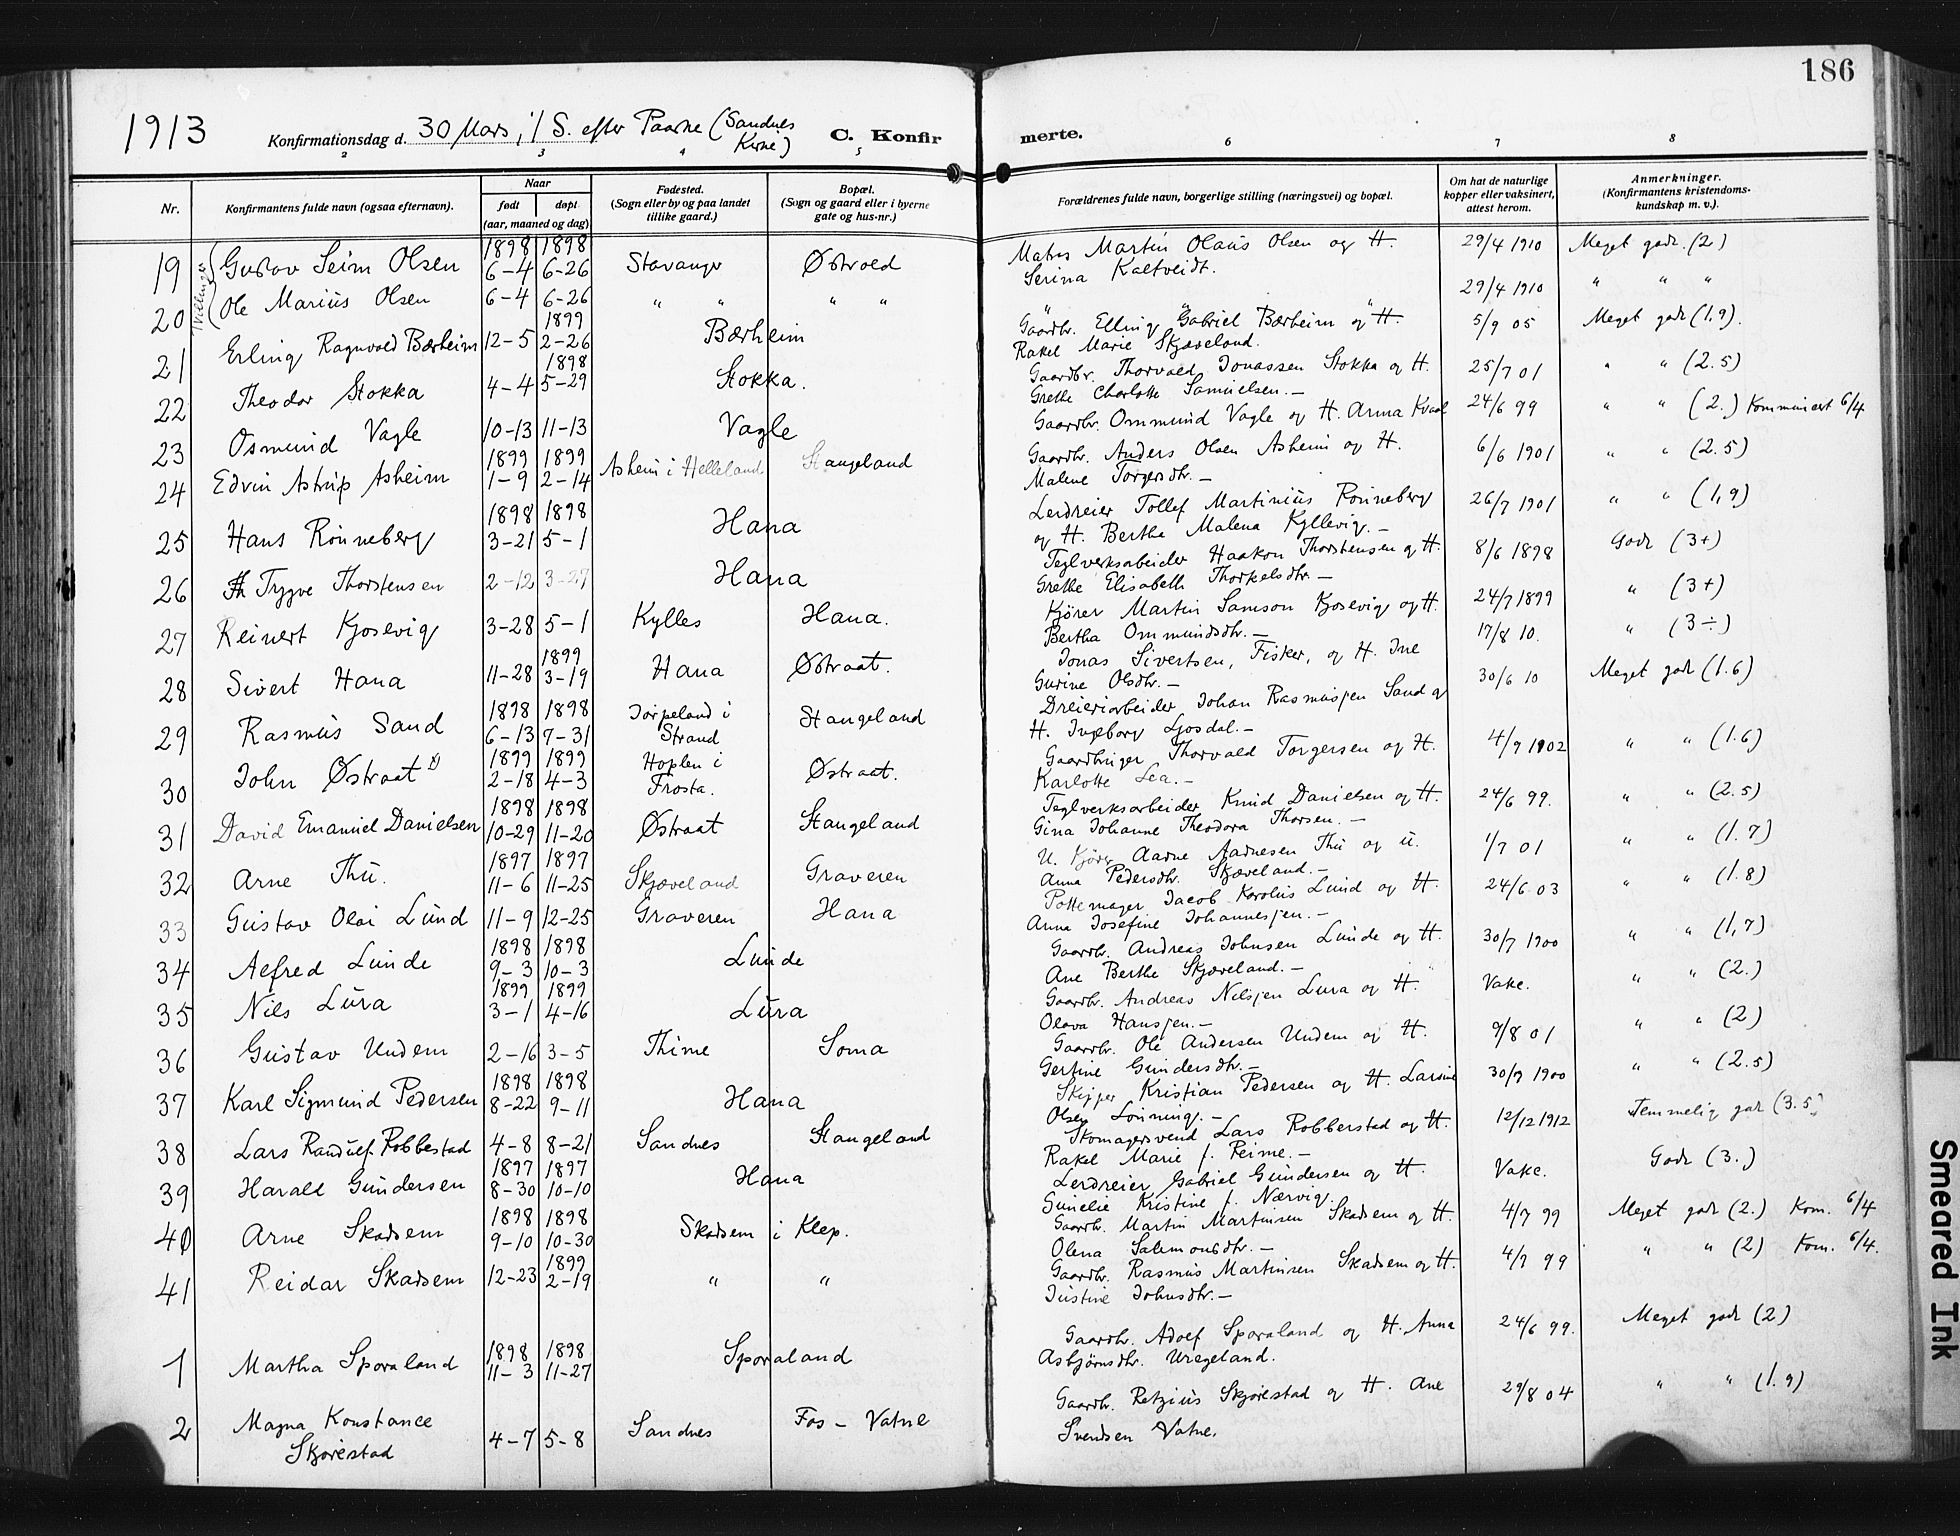 186
1913 Konfirmationsdag d. 30 Mars, 1 S. efter Paaske (Sandnes Kirke) C. Konfirmerte.
2 3 4 5 6 7 8
Nr. Konfirmantens fulde navn (ogsaa efternavn). Naar født døpt (aar, maaned og dag) Fødested. (Sogn eller by og paa landet tillike gaard.) Bopæl. (Sogn og gaard eller i byerne gate og hus-nr.) Forældrenes fulde navn, borgerlige stilling (næringsvei) og bopæl. Om hat de naturlige kopper eller vaksinert, attest herom. Anmerkninger. (Konfirmantens kristendoms-kundskap m. v.).
19 Gustav Seim Olsen 1898 6-4 1898 6-26 Stavanger Østvold Matros Martin Olaus Olsen og H. Serina Kaltveidt. 29/4 1910 Meget godt. (2)
Tvillinger
20 Ole Marius Olsen 6-4 6-26 " " " " " " 29/4 1910 " " "
21 Erling Ragnvald Bærheim 12-5 1899 2-26 Bærheim Gaardbr. Elling Gabriel Bærheim og H. Rakel Marie Skjæveland. 5/9 05 Meget godt (1,9).
22 Theodor Stokka 4-4 1898 5-29 Stokka. Gaardbr. Thorvald Jonassen Stokka og H. Grethe Charlotte Samuelsen.- 25/7 01 " " (2.5)
23 Osmund Vagle 10-13 11-13 Vagle Gaardbr. Ommund Vagle og H. Anna Kvaal 24/6 99 " " (2.) Kommunisert 6/4
24 Edvin Astrup Asheim 1899 1-9 1899 2-14 Asheim i Helleland Stangeland Gaardbr. Anders Olsen Asheim og H. Malene Torgersdtr.- 6/6 1901 " " (2.5)
25 Hans Rønneberg 1898 3-21 1898 5-1 Hana Lerdreier Tollef Martinius Rønneberg og H. Berthe Malena Kyllevig.- 26/7 1901 " " (1,9)
26 Trygve Thorstensen 2-12 3-27 Hana Teglverksarbeider Haakon Thorstensen og H. Grethe Elisabeth Thorkelsdtr.- 8/6 1898 Godt (3+)
27 Reinert Kjosevig 3-28 5-1 Kylles Hana. Kjører Martin Samson Kjosevig og H. Bertha Ommundsdtr.- 24/7 1899 " (3+)
28 Sivert Hana 11-28 1899 3-19 Hana Østraat. Jonas Sivertsen, Fisker, og H. Ine Gurine Olsdtr.- 17/8 10. " (3÷)
29 Rasmus Sand 1898 6-13 1898 7-31 Jørpeland i Strand Stangeland Dreieriarbeider Johan Rasmussen Sand og H. Ingeborg Ljosdal.- 30/6 10 Meget godt (1.6)
30 John Østraat 1) 1899 2-18 1899 4-3 Hoplen i Frosta. Østraat. Gaardbruger Thorvald Torgersen og H. Karlotte Lea.- 4/7 1902 " " (1.6)
31 David Emanuel Danielsen 1898 10-29 1898 11-20 Østraat Stangeland Teglverksarbeider Knud Danielsen og H. Gina Johanne Theodora Thorsen.- 24/6 99. " " (2.5)
32 Arne Thu. 1897 11-6 1897 11-25 Skjæveland Graveren U. Kjører Aadne Aadnesen Thu og u. Anna Pedersdtr. Skjæveland.- 1/7 01 " " (1.7)
33 Gustav Olai Lund 11-9 12-25 Graveren Hana Pottemager Jacob Karolius Lund og H. Anna Josefine Johannessen.- 24/6 03 " " (1.8)
34 Alfred Lunde 1898 9-3 1898 10-3 Lunde Gaardbr. Andreas Johnsen Lunde og H. Ane Berthe Skjæveland.- 30/7 1900 " " (1,7)
35 Nils Lura 1899 3-1 1899 4-16 Lura Gaardbr. Andreas Nilsen Lura og H. Olava Hansen.- Vake. " " (2.)
36 Gustav Undem 2-16 3-5 Thime Soma Gaardbr. Ole Andersen Undem og H. Gertine Gundersdtr.- 9/8 01 " " (2)
37 Karl Sigmund Pedersen 1898 8-22 1898 9-11 Hana Skipper Kristian Pedersen og H. Larsine Olsen Lonning.- 30/7 1900 " " (2.5)
38 Lars Randulf Robbestad 4-8 8-21 Sandnes Stangeland Skomagersvend Lars Robberstad og H. Rakel Marie f. Reime.- 12/12 1912 Temmelig godt (3.5)
39 Harald Gundersen 1897 8-30 1897 10-10 Hana Lerdreier Gabriel Gundersen og H. Gunelie Kristine f. Nærvig. Vake. Godt (3.)
40 Arne Skadsem 1898 9-10 1898 10-30 Skadsem i Klep. Gaardbr. Martin Martinsen Skadsem og H. Olena Salamonsdtr.- 4/7 99 Meget godt (2.) Kom. 6/4
41 Reidar Skadsem 12-23 1899 2-19 " " Gaardbr. Rasmus Martinsen Skadsem og H. Justine Johnsdtr.- 4/7 99 " " (2) Kom. 6/4.
1 Martha Sporaland 1898 11-3 1898 11-27 Sporaland Gaardbr. Adolf Sporaland og H. Anna Asbjørnsdtr. Uregeland. 24/6 99. Meget godt (2)
2 Magna Konstance Skjørestad 4-7 5-8 Sandnes Fos - Vatne Gaardbr. Retzius Skjørestad og H. Ane Svendsen Vatne. 29/8 04 " " (1.9)
Smeared Ink